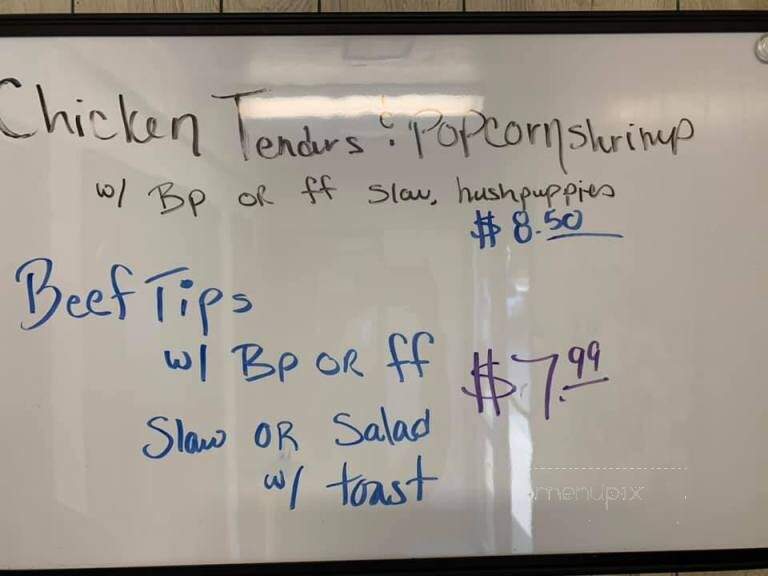 Chicken Tenders & Popcorn shrimp
w/ Bp OR ff slaw, hushpuppies
$8.50
Beef Tips
w/ Bp OR ff
$7.99
Slaw OR Salad
w/ toast
menupix